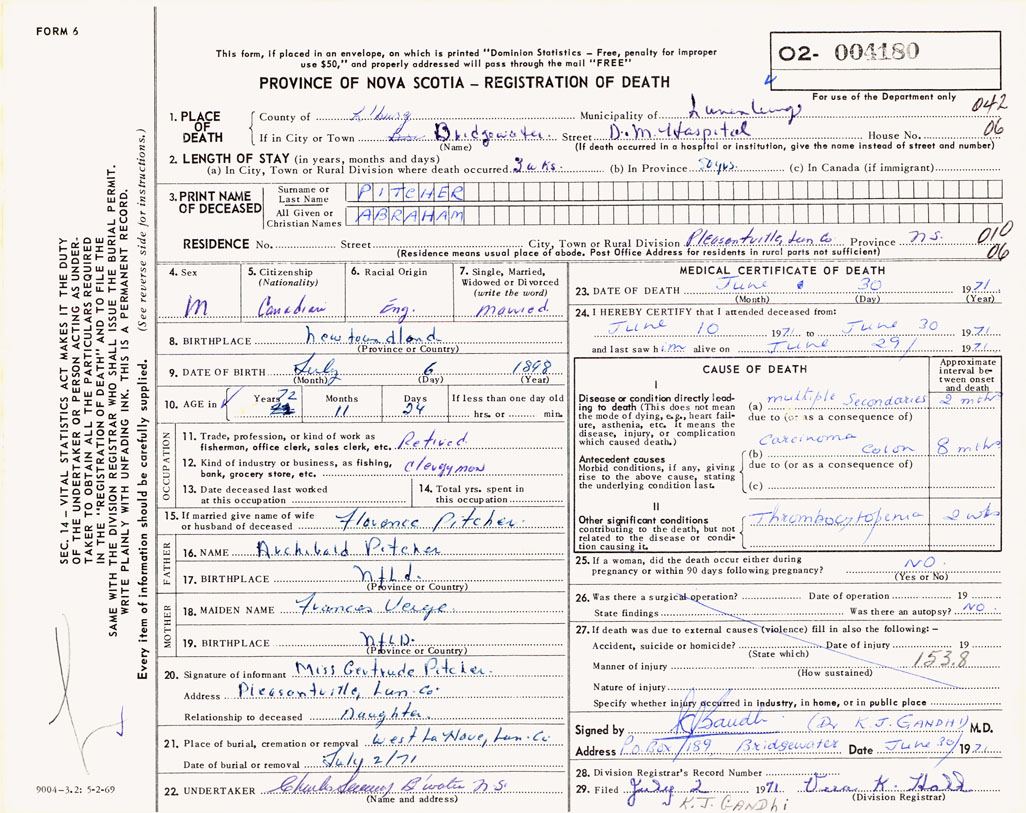 FORM 6
This form, if placed in an envelope, on which is printed "Dominion Statistics – Free, penalty for improper
use $50," and properly addressed will pass through the mail "FREE"
O2- 004180
For use of the Department only
PROVINCE OF NOVA SCOTIA – REGISTRATION OF DEATH
042
06
1. PLACE OF DEATH
County of Municipality of Lunenburg
If in City or Town Bridgewater Street D. M. Hospital House No.
(Name) (If death occurred in a hospital or institution, give the name instead of street and number)
2. LENGTH OF STAY (in years, months and days)
(a) In City, Town or Rural Division where death occurred wks. (b) In Province 50 yrs. (c) In Canada (if immigrant)
3. PRINT NAME OF DECEASED
Surname or Last Name PITCHER
All Given or Christian Names ABRAHAM
RESIDENCE No. Street City, Town or Rural Division Pleasantville, Lun Co Province N.S. 010
(Residence means usual place of abode. Post Office Address for residents in rural parts not sufficient) 06
4. Sex M
5. Citizenship (Nationality) Canadian
6. Racial Origin Eng.
7. Single, Married, Widowed or Divorced (write the word) Married
8. BIRTHPLACE Newfoundland
(Province or Country)
9. DATE OF BIRTH July 6 1898
(Month) (Day) (Year)
10. AGE in Years 72 Months 11 Days 24 If less than one day old
hrs. or min.
OCCUPATION
11. Trade, profession, or kind of work as
fisherman, office clerk, sales clerk, etc. Retired
12. Kind of industry or business, as fishing,
bank, grocery store, etc. Clergyman
13. Date deceased last worked
at this occupation
14. Total yrs. spent in
this occupation
15. If married give name of wife
or husband of deceased Florence Pitcher.
FATHER
16. NAME Archibald Pitcher
17. BIRTHPLACE Nfld.
(Province or Country)
MOTHER
18. MAIDEN NAME Frances Verge.
19. BIRTHPLACE Nfld.
(Province or Country)
20. Signature of informant Miss Gertrude Pitcher.
Address Pleasantville, Lun. Co.
Relationship to deceased Daughter.
21. Place of burial, cremation or removal West La Have, Lun. Co
Date of burial or removal July 2/71
22. UNDERTAKER Charles B'water N.S.
(Name and address)
MEDICAL CERTIFICATE OF DEATH
23. DATE OF DEATH June 30 1971
(Month) (Day) (Year)
24. I HEREBY CERTIFY that I attended deceased from:
June 10 1971 to June 30 1971
and last saw him alive on June 29/ 1971
CAUSE OF DEATH
Approximate interval between onset and death
I
Disease or condition directly leading to death (This does not mean the mode of dying, e.g., heart failure, asthenia, etc. It means the disease, injury, or complication which caused death.)
(a) multiple Secondaries 2 mths
due to (or as a consequence of)
Antecedent causes
Morbid conditions, if any, giving rise to the above cause, stating the underlying condition last.
(b) Carcinoma Colon 8 mths
due to (or as a consequence of)
(c)
II
Other significant conditions
contributing to the death, but not related to the disease or condition causing it.
Thrombocytopenia 2 wks
25. If a woman, did the death occur either during
pregnancy or within 90 days following pregnancy? NO.
(Yes or No)
26. Was there a surgical operation? Date of operation 19
State findings Was there an autopsy? NO.
27. If death was due to external causes (violence) fill in also the following: –
Accident, suicide or homicide? Date of injury 19
(State which) 153.8
Manner of injury
(How sustained)
Nature of injury
Specify whether injury occurred in industry, in home, or in public place
Signed by K J Gandhi (Dr K. J. GANDHI) M.D.
Address P.O. Box 189 Bridgewater Date June 30/ 1971
28. Division Registrar's Record Number
29. Filed July 2 1971 Vera K. Hall
(Division Registrar)
K. J. GANDHI
SEC. 14 – VITAL STATISTICS ACT MAKES IT THE DUTY
OF THE UNDERTAKER OR PERSON ACTING AS UNDER-
TAKER TO OBTAIN ALL THE PARTICULARS REQUIRED
IN THE "REGISTRATION OF DEATH" AND TO FILE THE
SAME WITH THE DIVISION REGISTRAR WHO SHALL ISSUE THE BURIAL PERMIT.
WRITE PLAINLY WITH UNFADING INK. THIS IS A PERMANENT RECORD.
Every item of information should be carefully supplied. (See reverse side for instructions.)
9004-3.2: 5-2-69